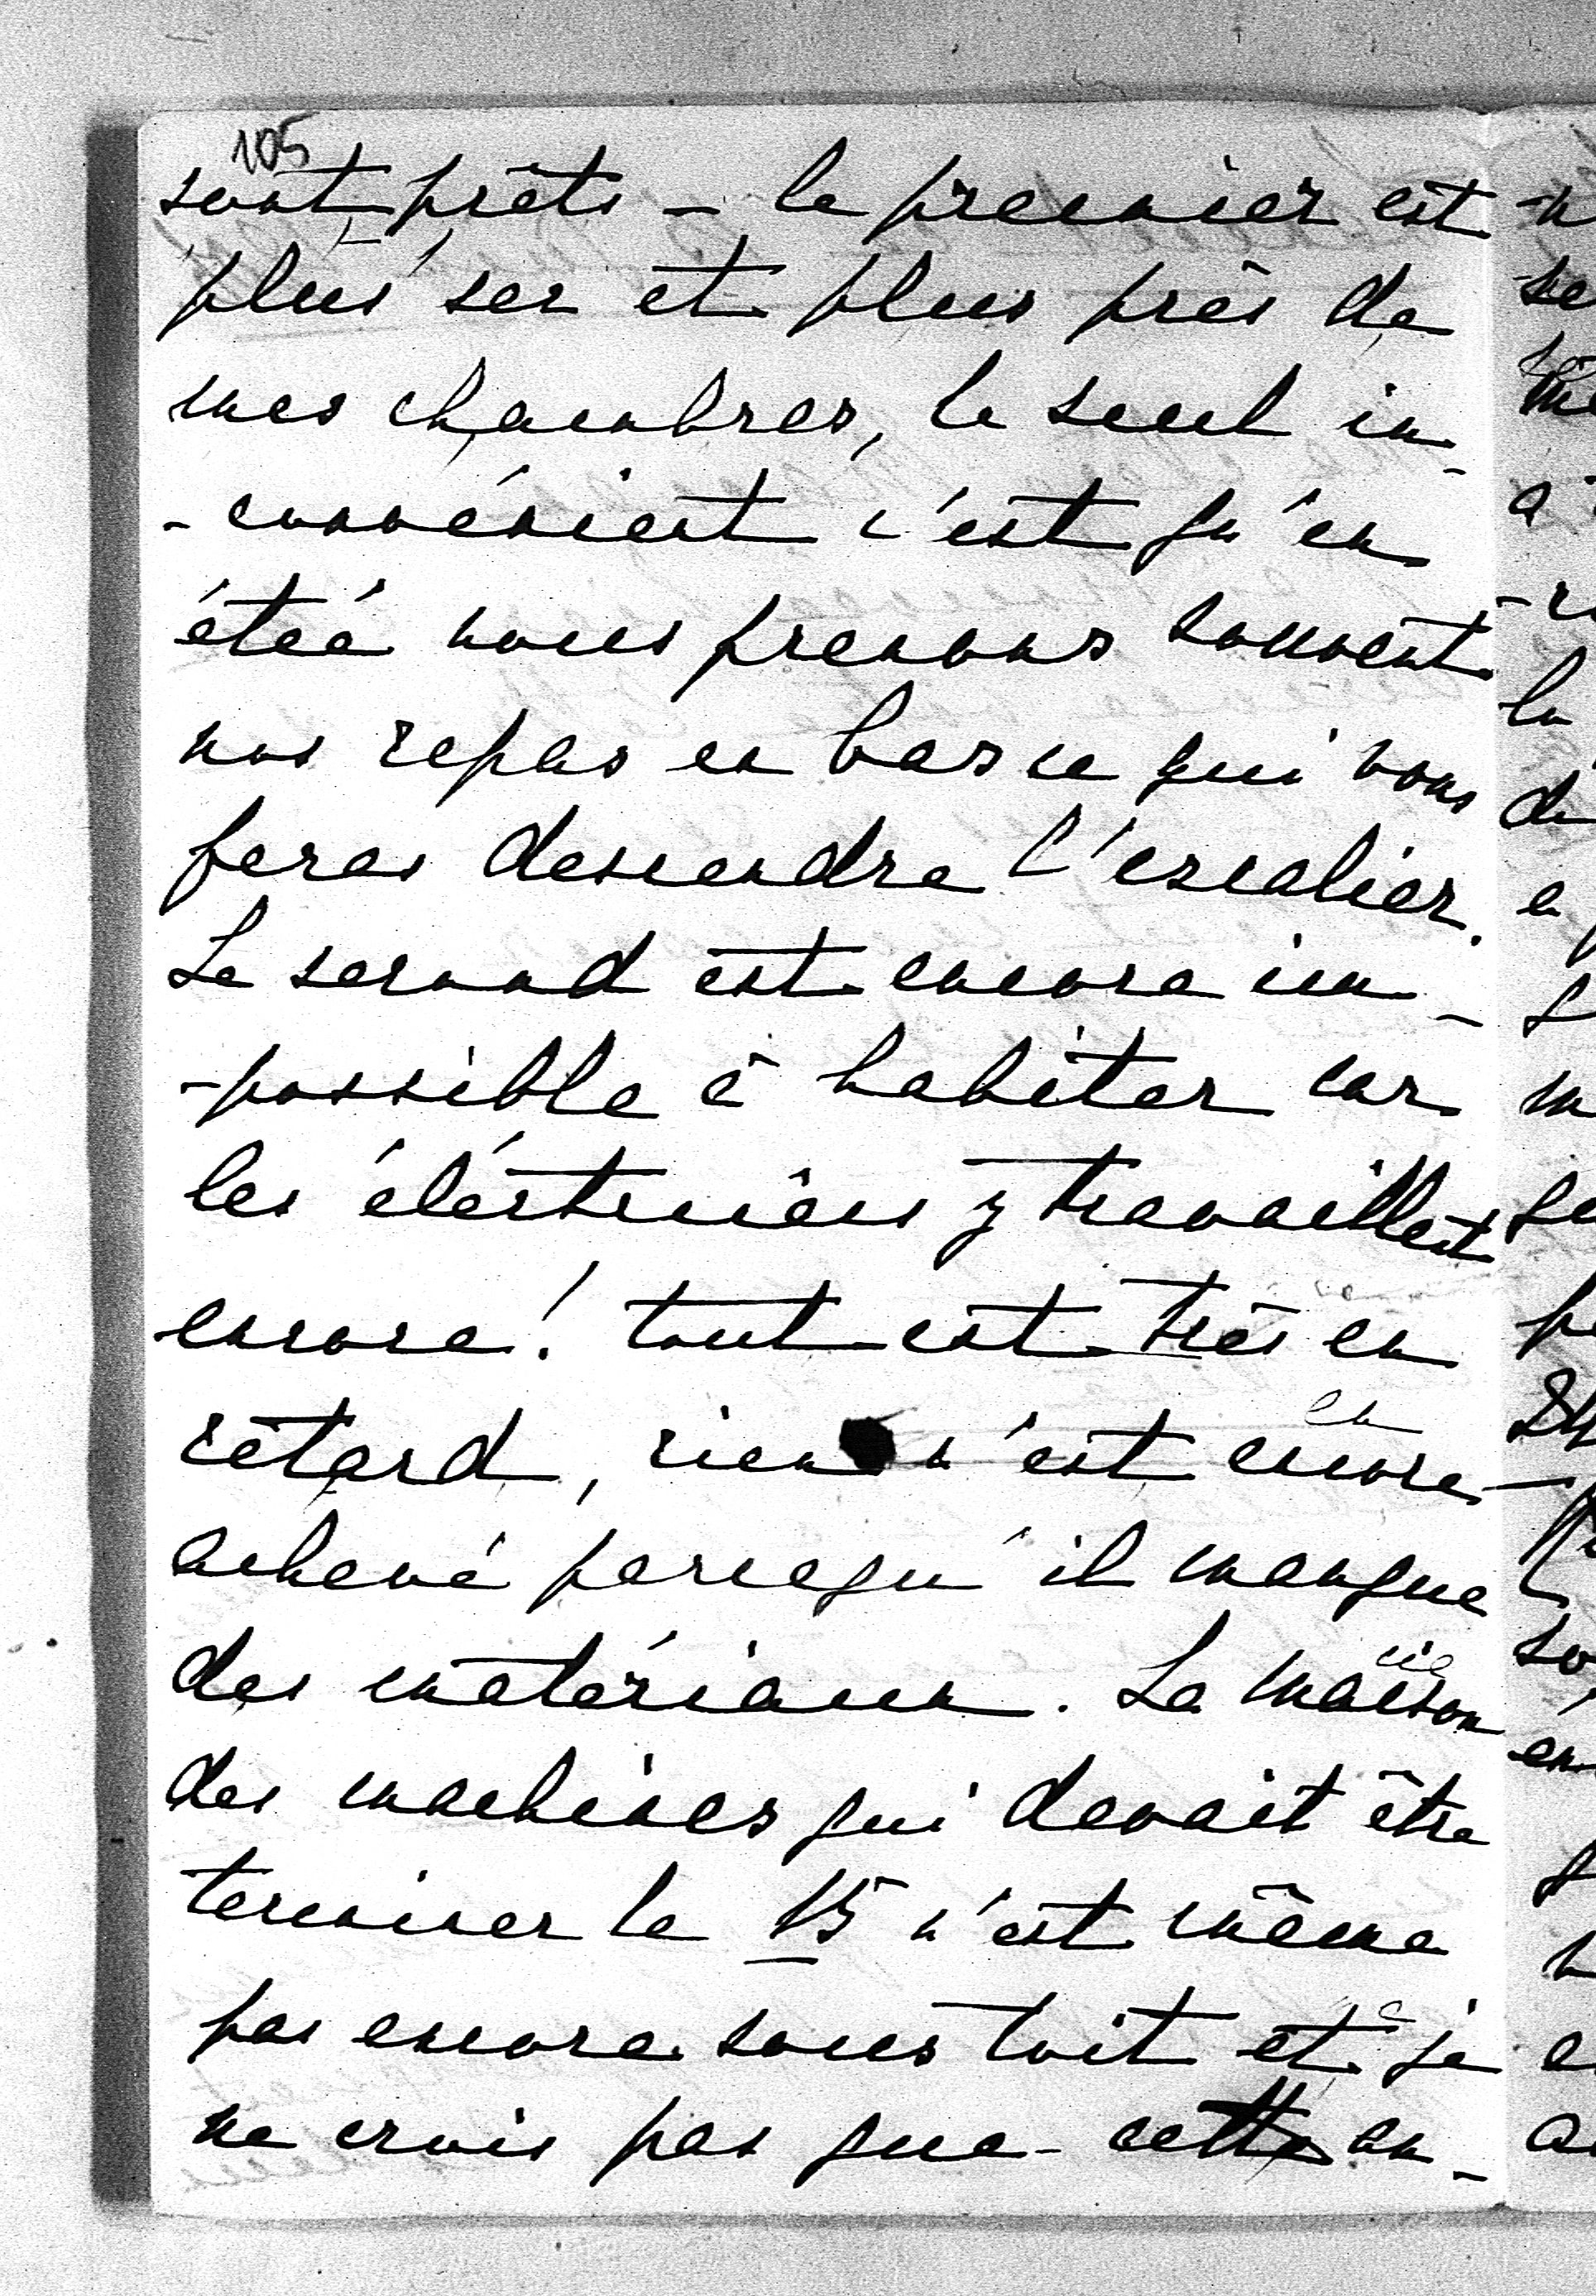 105
sont prêts – le premier est
plus sec et plus près de
mes chambres, le seul in-
-convénient c'est qu'en
étéé nous prenons souvent
nos repas en bas ce qui vous
feras descendre l'escalier.
Le second est encore im-
-possible à habiter car
les éléctriciens y travaillent
encore! tout est très en
rétard, rien n'est encore
achevé parcequ'il manque
des matériaux. La maison
des machines qui devait être
terminer le 15 n'est même
pas encore sous toit et je
ne crois pas que cette en-